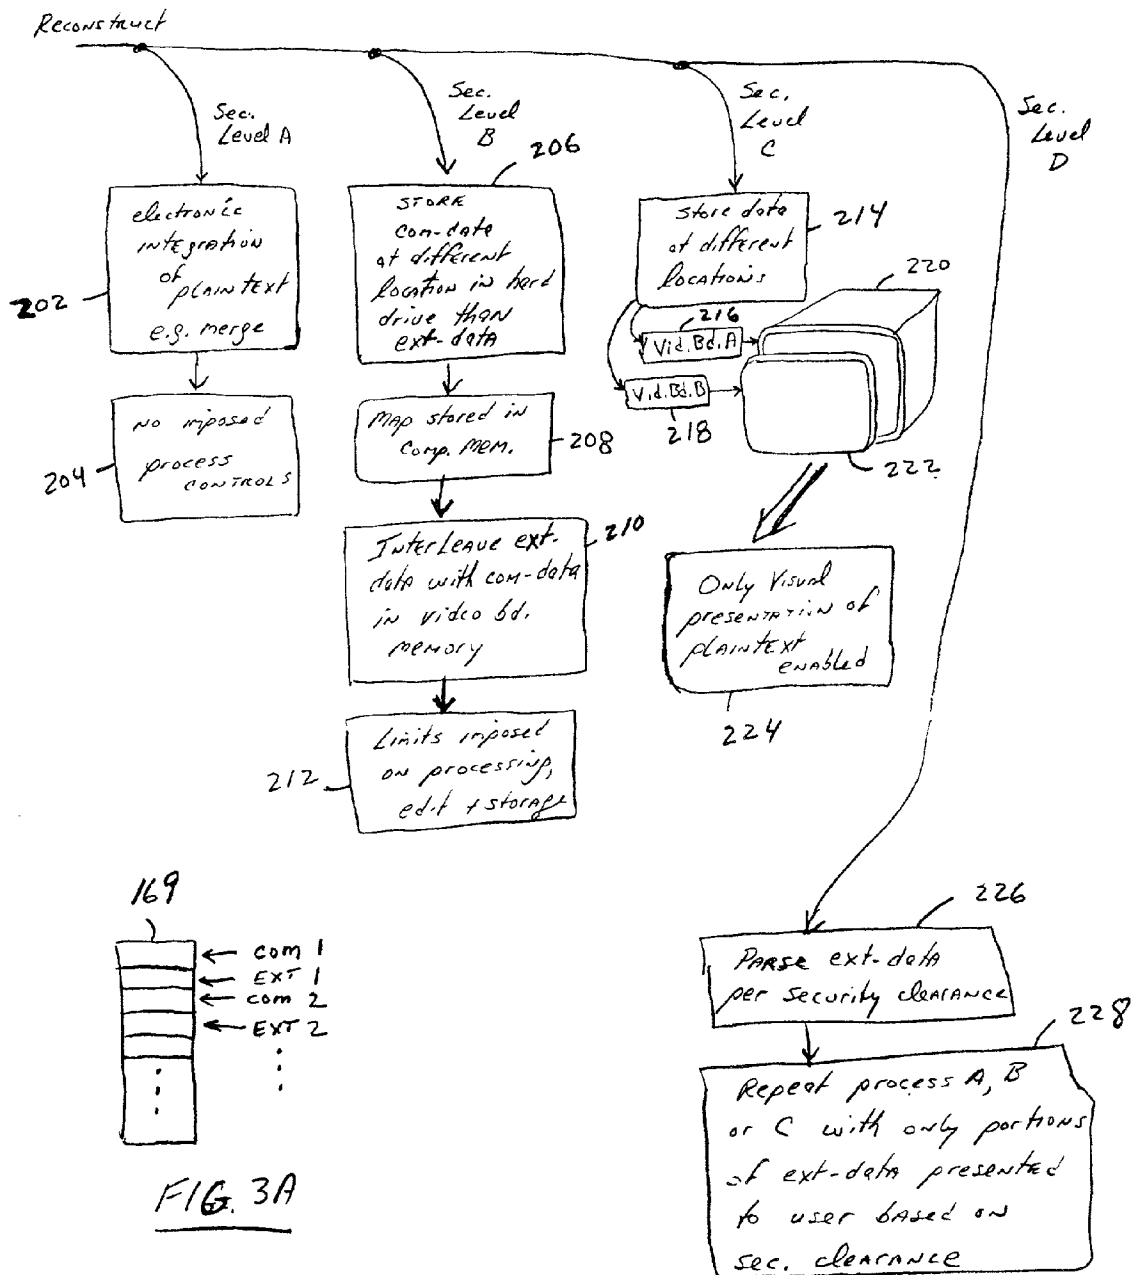 Reconstruct
Sec.
Level A
Sec.
Level
B
Sec.
Level
C
Sec.
Level
D
202
electronic
integration
of plaintext
e.g. merge
204
no imposed
process
controls
206
STORE
com-data
at different
location in hard
drive than
ext-data
Map stored in
Comp. Mem.
208
210
Interleave ext-
data with com-data
in video bd.
memory
212
Limits imposed
on processing,
edit + storage
214
Store data
at different
locations
216
Vid. Bd. A
Vid. Bd. B
218
220
222
Only Visual
presentation of
plaintext
enabled
224
226
Parse ext-data
per security clearance
228
Repeat process A, B
or C with only portions
of ext-data presented
to user based on
sec. clearance
169
com 1
EXT 1
com 2
EXT 2
FIG. 3A